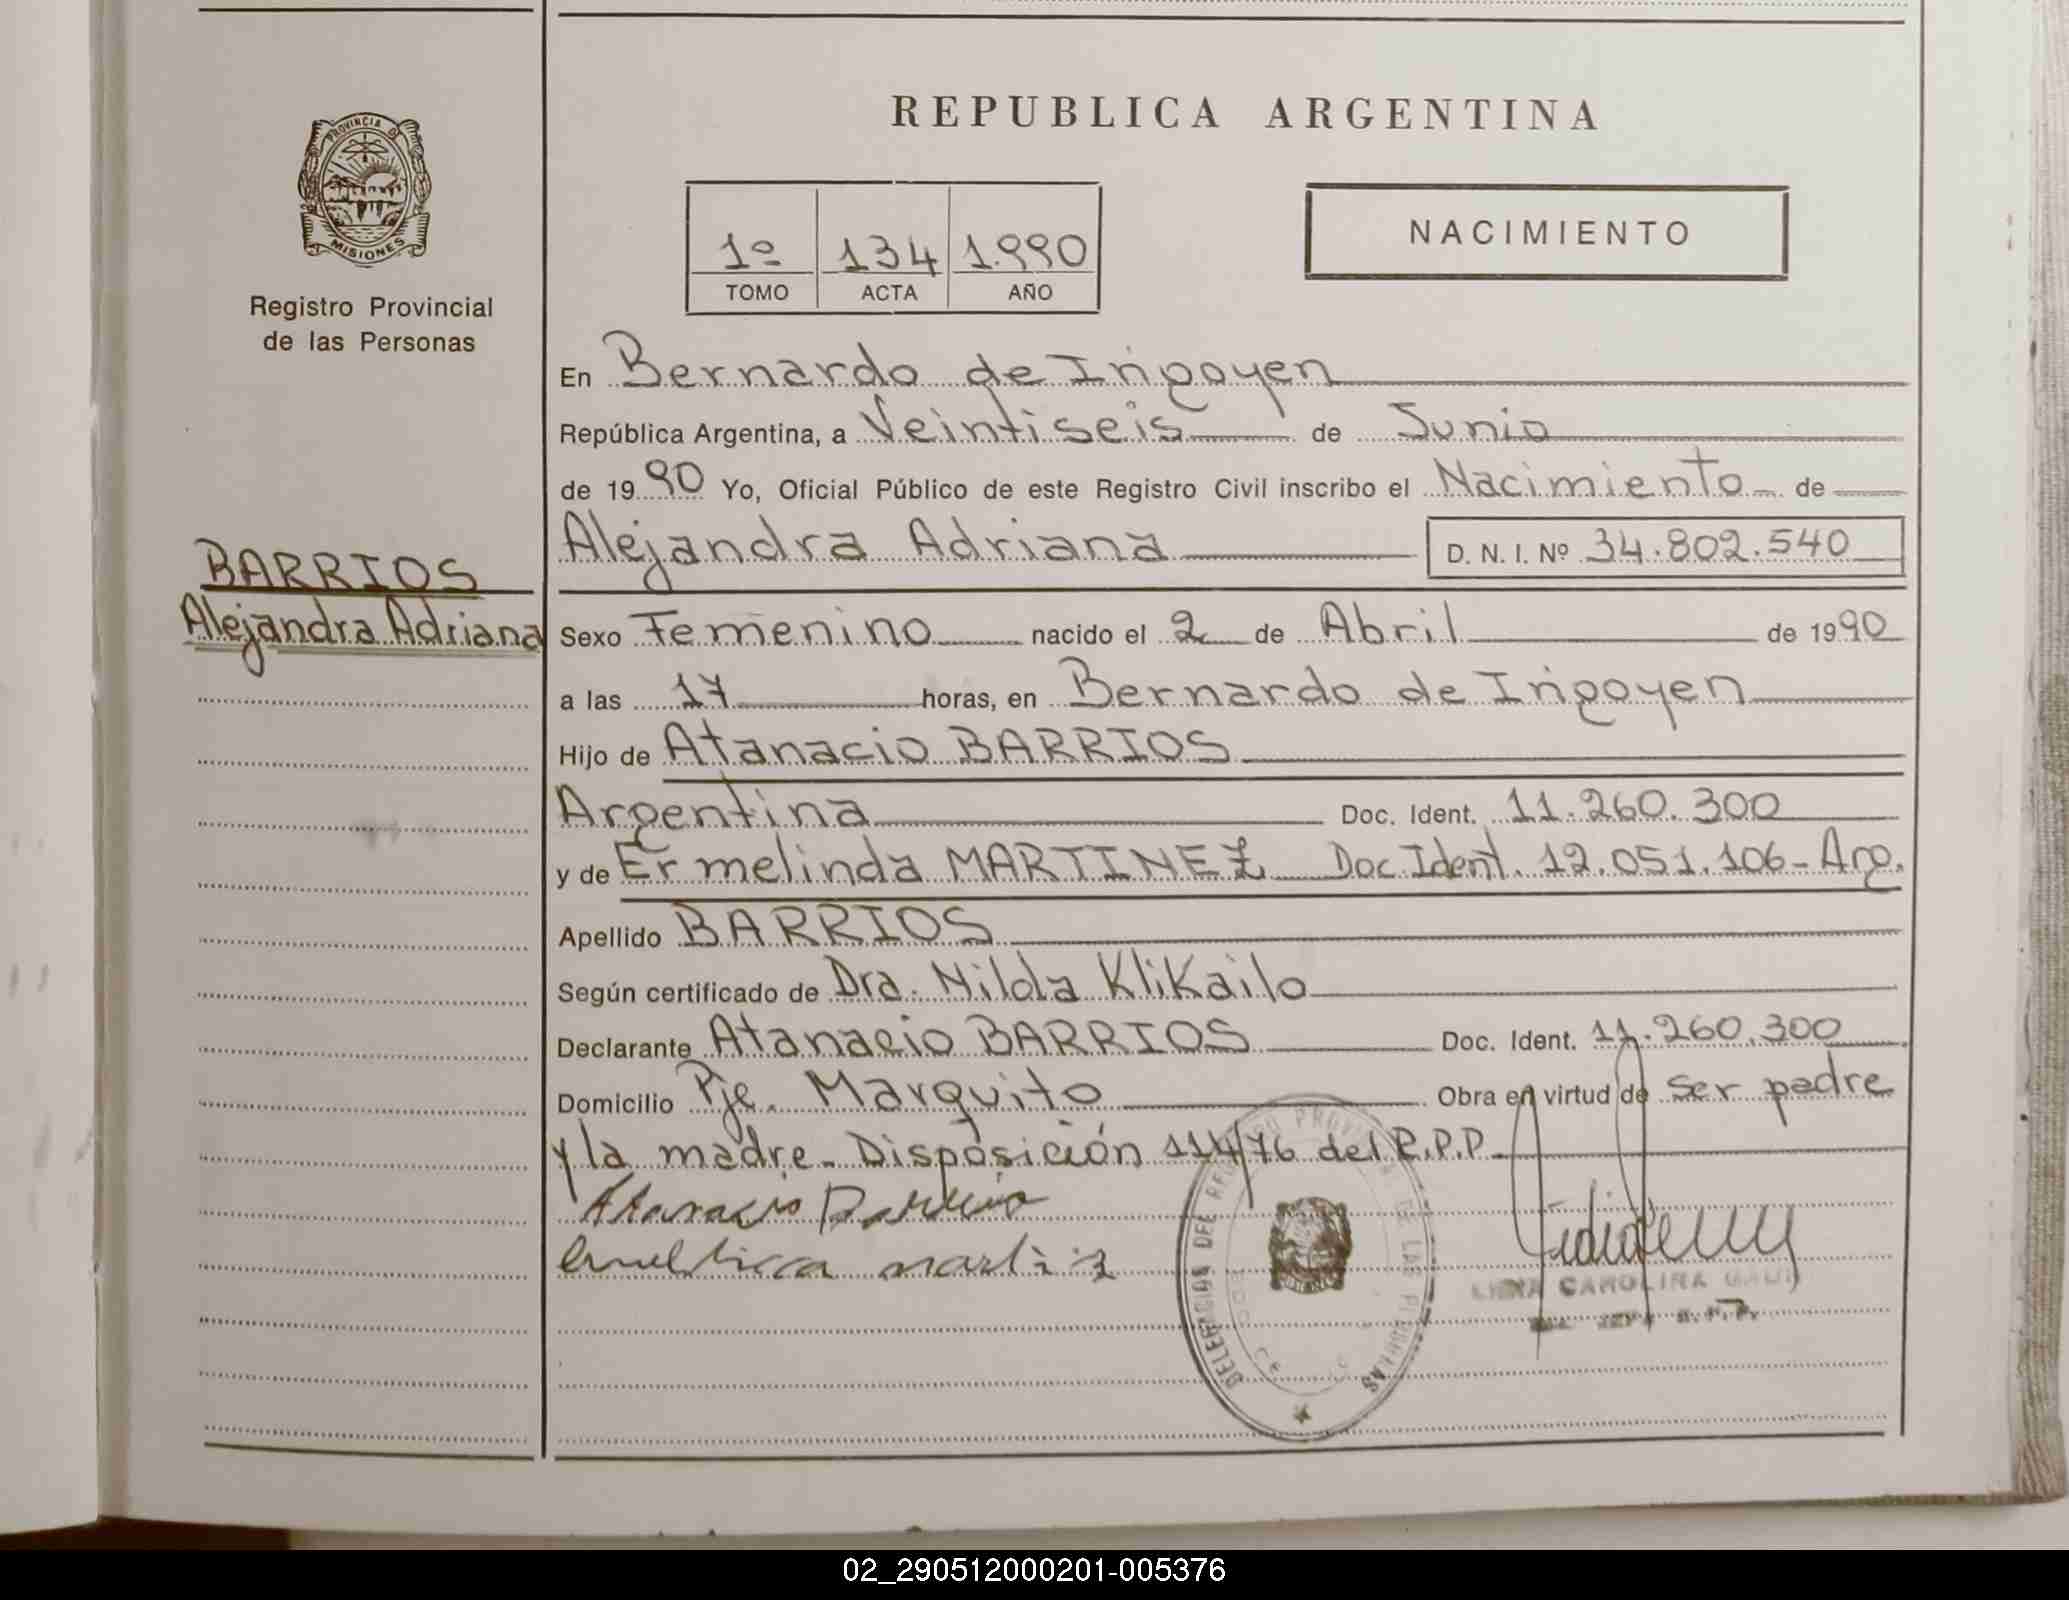 REPUBLICA ARGENTINA
PROVINCIA DE
MISIONES
Registro Provincial
de las Personas
1º 134 1.990
TOMO ACTA AÑO
NACIMIENTO
En Bernardo de Irigoyen
República Argentina, a Veintiseis de Junio
de 1990 Yo, Oficial Público de este Registro Civil inscribo el Nacimiento de
Alejandra Adriana D. N. I. Nº 34.802.540
BARRIOS
Alejandra Adriana
Sexo Femenino nacido el 2 de Abril de 1990
a las 17 horas, en Bernardo de Irigoyen
Hijo de Atanacio BARRIOS
Argentina Doc. Ident. 11.260.300
y de Ermelinda MARTINEZ Doc Ident. 12.051.106- Arg.
Apellido BARRIOS
Según certificado de Dra. Nilda KliKailo
Declarante Atanacio BARRIOS Doc. Ident. 11.260.300
Domicilio Pje. Marquito Obra en virtud de ser padre
y la madre- Disposición 114/76 del R.P.P.
Atanacio Barrios
DELEGACION DEL REGISTRO PROVINCIAL DE LAS PERSONAS
CAROLINA
02_290512000201-005376